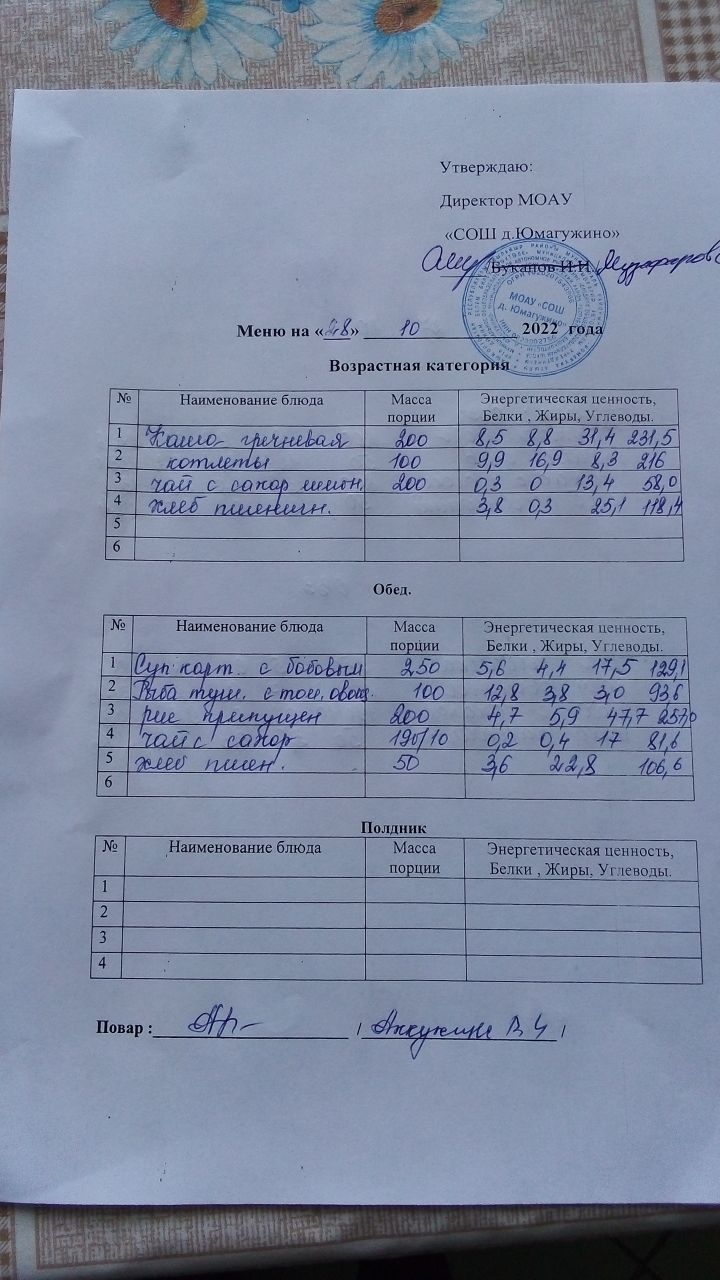 Утверждаю:
Директор МОАУ
«СОШ д.Юмагужино»
/Буканов И.И./
МОАУ «СОШ
д. Юмагужино»
Меню на «28» 10 2022 года
Возрастная категория
№ Наименование блюда Масса порции Энергетическая ценность, Белки , Жиры, Углеводы.
1 Каша гречневая 200 8,5 8,8 31,4 231,5
2 котлеты 100 9,9 16,9 8,3 216
3 чай с сахар лимон. 200 0,3 0 13,4 58,0
4 хлеб пшеничн. 3,8 0,3 25,1 118,4
5
6
Обед.
№ Наименование блюда Масса порции Энергетическая ценность, Белки , Жиры, Углеводы.
1 Суп карт. с бобовым 250 5,6 4,4 17,5 129,1
2 Рыба туш. с том. овощ. 100 12,8 3,8 3,0 93,6
3 рис припущен 200 4,7 5,9 47,7 257,0
4 чай с сахар 190/10 0,2 0,4 17 81,6
5 хлеб пшен. 50 3,6 22,8 106,6
6
Полдник
№ Наименование блюда Масса порции Энергетическая ценность, Белки , Жиры, Углеводы.
1
2
3
4
Повар : / /